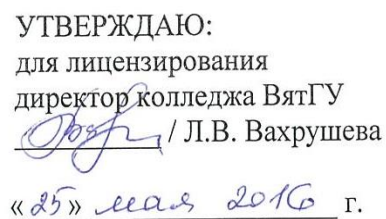 УТВЕРЖДАЮ:
для лицензирования
директор колледжа ВятГУ
/ Л.В. Вахрушева
«25» мая 2016 г.